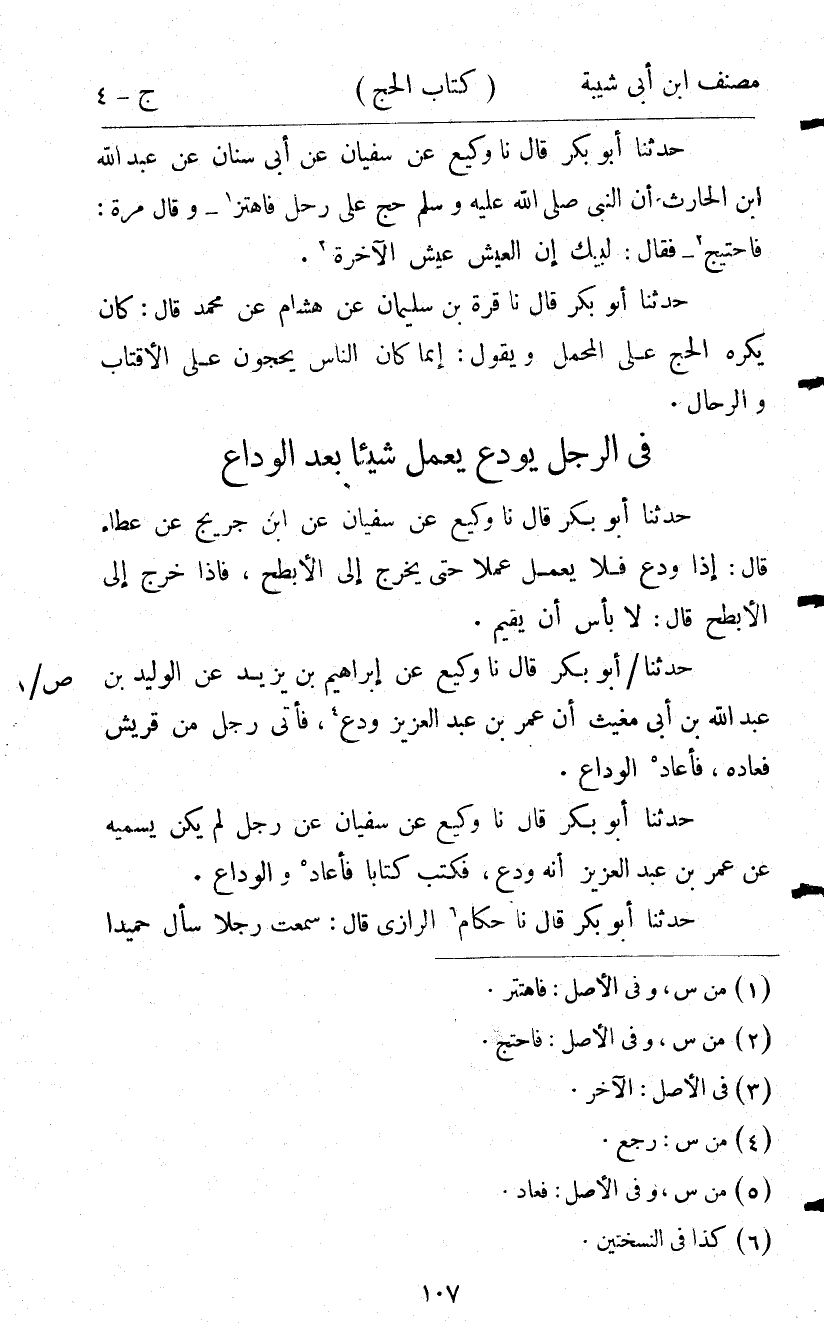 مصنف ابن أبى شيبة ( كتاب الحج ) ج - ٤
حدثنا أبو بكر قال نا وكيع عن سفيان عن أبى سنان عن عبد الله
ابن الحارث أن النبى صلى الله عليه و سلم حج على رحل فاهتز١ - و قال مرة :
فاحتيج٢ - فقال : لبيك إن العيش عيش الآخرة٣ .
حدثنا أبو بكر قال نا قرة بن سليمان عن هشام عن محمد قال : كان
يكره الحج على المحمل و يقول : إنما كان الناس يحجون على الأقتاب
و الرحال .
فى الرجل يودع يعمل شيئا بعد الوداع
حدثنا أبو بكر قال نا وكيع عن سفيان عن ابن جريج عن عطاء
قال : إذا ودع فلا يعمل عملا حتى يخرج إلى الأبطح ، فاذا خرج إلى
الأبطح قال : لا بأس أن يقيم .
حدثنا / أبو بكر قال نا وكيع عن إبراهيم بن يزيد عن الوليد بن ص/١
عبد الله بن أبى مغيث أن عمر بن عبد العزيز ودع٤ ، فأتى رجل من قريش
فعاده ، فأعاد٥ الوداع .
حدثنا أبو بكر قال نا وكيع عن سفيان عن رجل لم يكن يسميه
عن عمر بن عبد العزيز أنه ودع ، فكتب كتابا فأعاد٥ و الوداع .
حدثنا أبو بكر قال نا حكام٦ الرازى قال : سمعت رجلا سأل حميدا
(١) من س ، و فى الأصل : فاهتتر .
(٢) من س ، و فى الأصل : فاحتج .
(٣) فى الأصل : الآخر .
(٤) من س : رجع .
(٥) من س ، و فى الأصل : فعاد .
(٦) كذا فى النسختين .
١٠٧